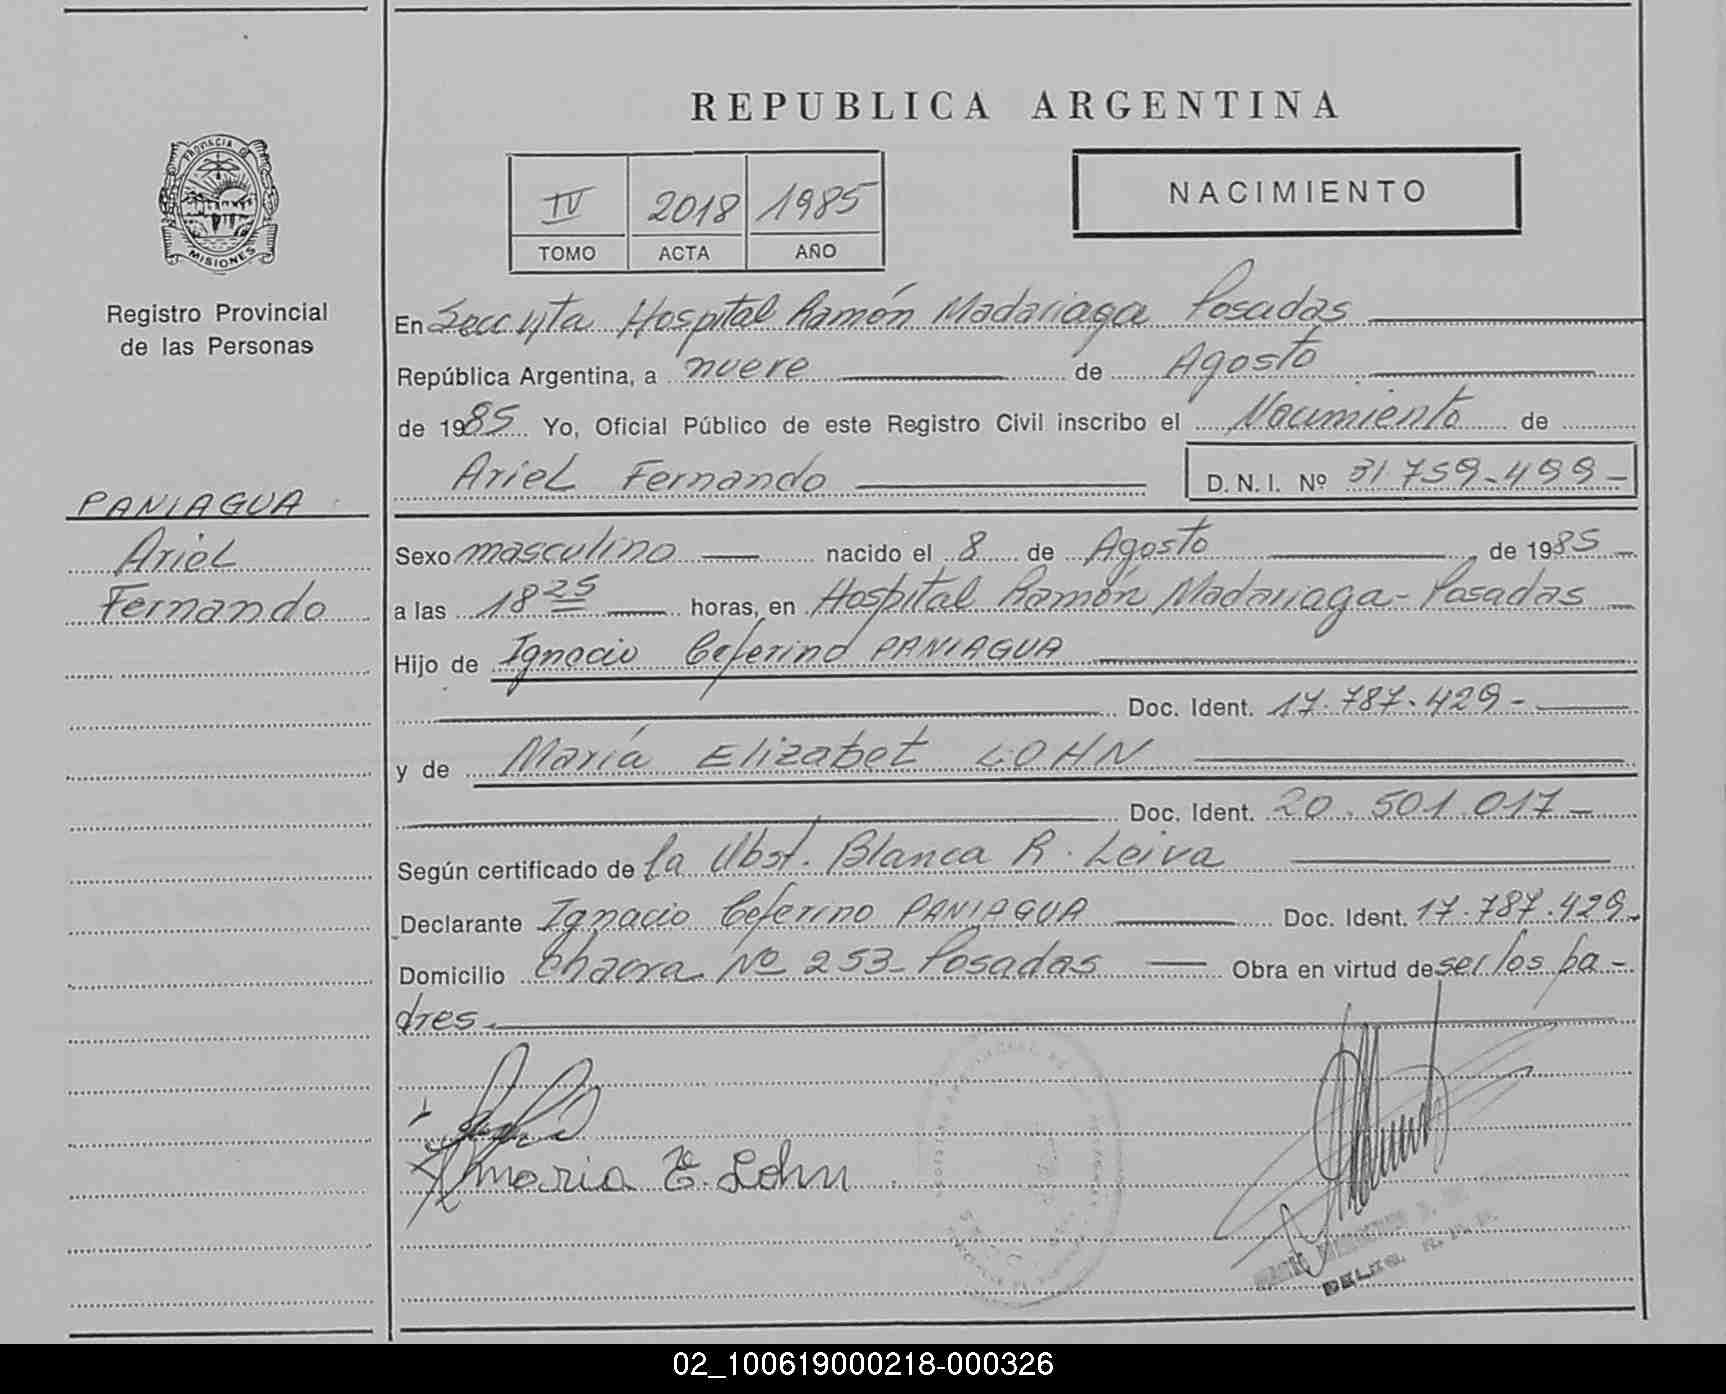 REPUBLICA ARGENTINA
PROVINCIA DE
MISIONES
Registro Provincial
de las Personas
IV 2018 1985
TOMO ACTA AÑO
NACIMIENTO
PANIAGUA
Ariel
Fernando
En Secc yta Hospital Ramón Madariaga Posadas
República Argentina, a nueve de Agosto
de 1985 Yo, Oficial Público de este Registro Civil inscribo el Nacimiento de
Ariel Fernando D. N. I. Nº 31.759.499-
Sexo masculino nacido el 8 de Agosto de 1985
a las 18 25 horas, en Hospital Ramón Madariaga - Posadas
Hijo de Ignacio Ceferino PANIAGUA
Doc. Ident. 17.787.429-
y de María Elizabet LOHN
Doc. Ident. 20.501.017-
Según certificado de la Obst. Blanca R. Leiva
Declarante Ignacio Ceferino PANIAGUA Doc. Ident. 17.787.429-
Domicilio Chacra Nº 253- Posadas Obra en virtud de ser los pa-
dres.
Maria E. Lohn
02_100619000218-000326